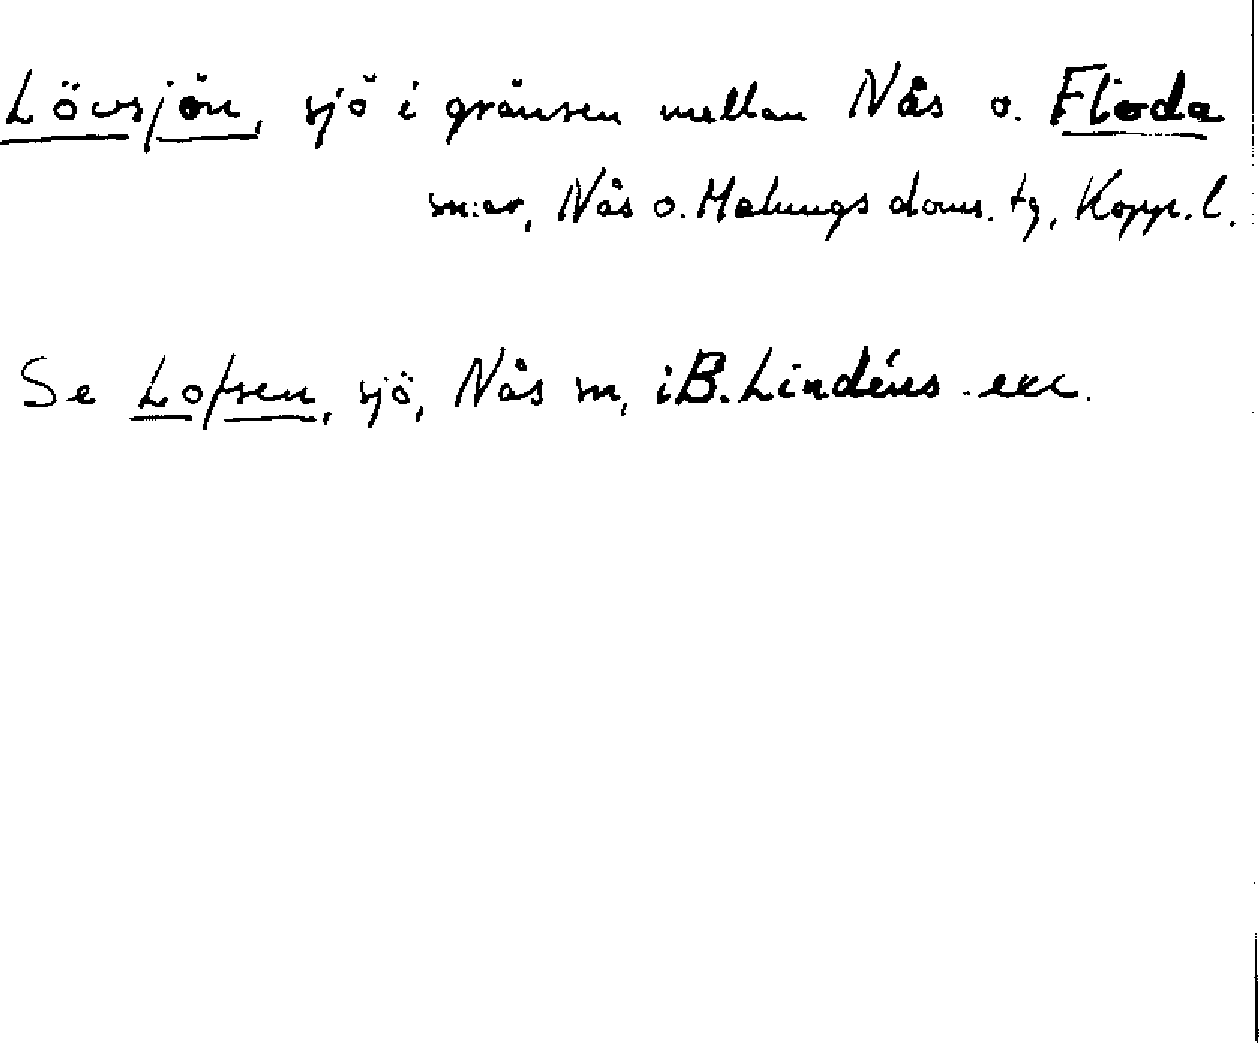 Lövsjön, sjö i gränsen mellan Nås o. Floda
sn:ar, Nås o. Malungs doms. tg, Kopp. l.
Se Lofsen, sjö, Nås sn, i B. Lindéns exc.